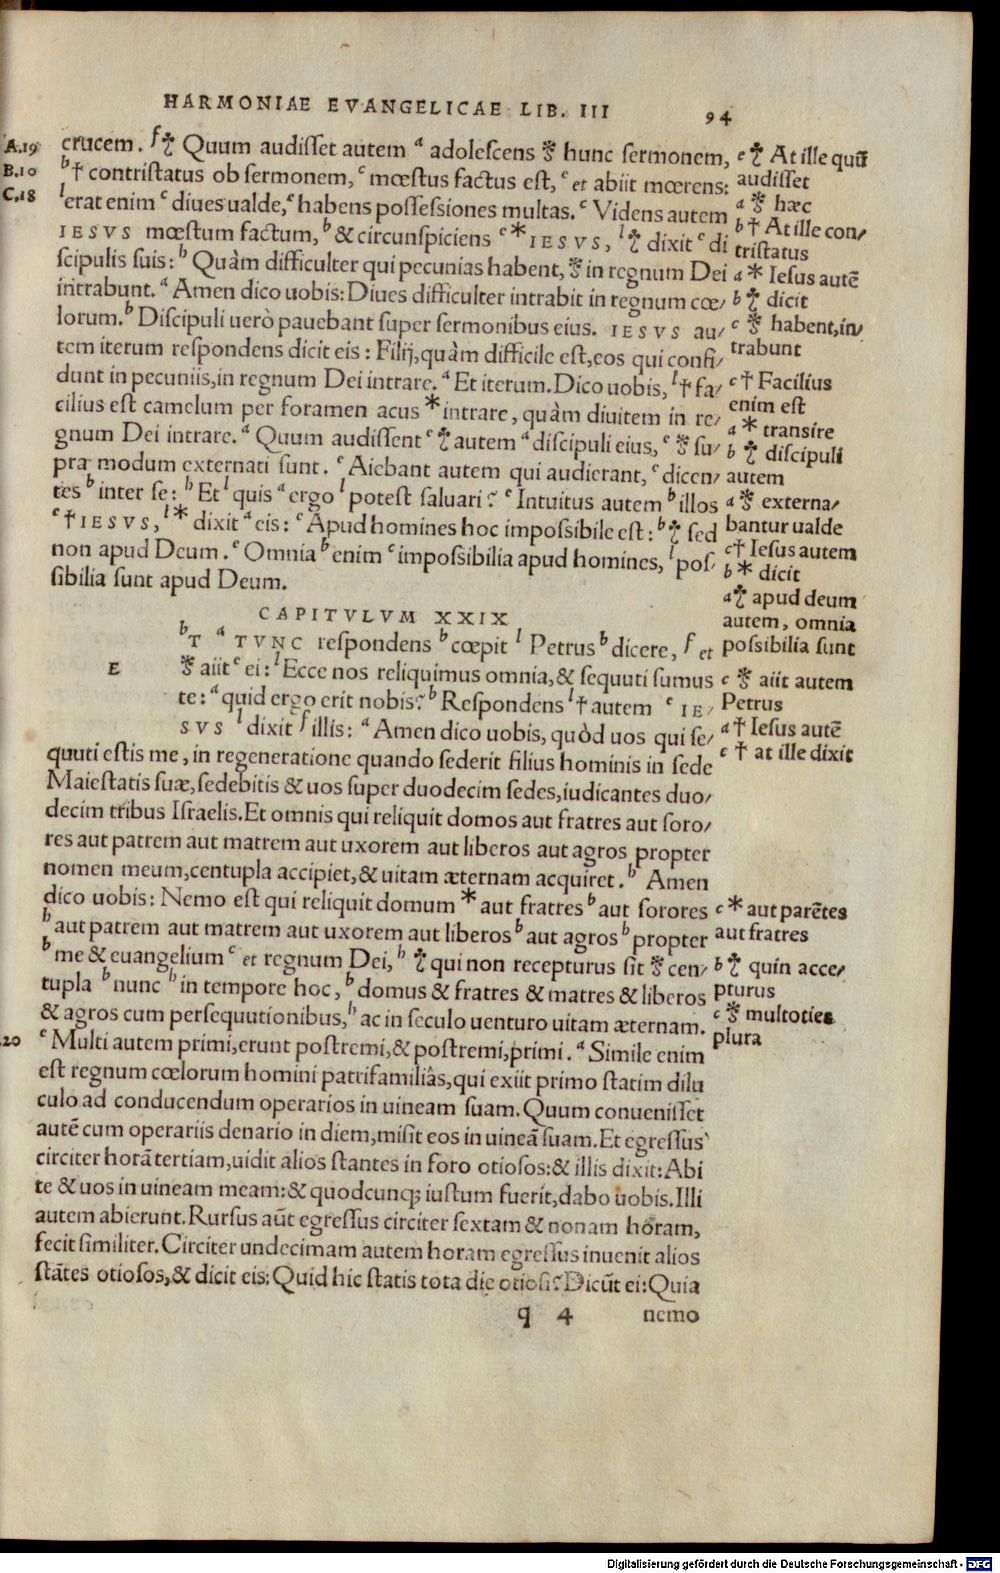 HARMONIAE EVANGELICAE LIB. III 94
A.19
B.10
C.18
crucem. f ☧ Quum audisset autem a adolescens ⚵ hunc sermonem,
b † contristatus ob sermonem, c mœstus factus est, e et abiit mœrens:
l erat enim c diues ualde, e habens possessiones multas. c Videns autem
IESVS mœstum factum, b & circunspiciens c * IESVS, l ☧ dixit c di
scipulis suis: b Quàm difficulter qui pecunias habent, ⚵ in regnum Dei
intrabunt. a Amen dico uobis: Diues difficulter intrabit in regnum cœ/
lorum. b Discipuli uerò pauebant super sermonibus eius. IESVS au/
tem iterum respondens dicit eis: Filij, quàm difficile est, eos qui confi/
dunt in pecuniis, in regnum Dei intrare. a Et iterum. Dico uobis, l † fa/
cilius est camelum per foramen acus * intrare, quàm diuitem in re/
gnum Dei intrare. a Quum audissent c ☧ autem a discipuli eius, e ⚵ su/
pra modum externati sunt. c Aiebant autem qui audierant, c dicen/
tes b inter se: b Et l quis a ergo l potest saluari? e Intuitus autem b illos
c † IESVS, l * dixit a eis: c Apud homines hoc impossibile est: b ☧ sed
non apud Deum. e Omnia b enim c impossibilia apud homines, l pos/
sibilia sunt apud Deum.
e ☧ At ille quū
audisset
a ⚵ hæc
b † At ille con/
tristatus
a * Iesus autē
b ☧ dicit
c ⚵ habent, in/
trabunt
c † Facilius
enim est
a * transire
b ☧ discipuli
autem
a ⚵ externa/
bantur ualde
c † Iesus autem
b * dicit
a ☧ apud deum
autem, omnia
possibilia sunt
CAPITVLVM XXIX
E
b T a TVNC respondens b cœpit l Petrus b dicere, f et
⚵ aiit e ei: l Ecce nos reliquimus omnia, & sequuti sumus
te: a quid ergo erit nobis? b Respondens l † autem e IE/
SVS l dixit f illis: a Amen dico uobis, quòd uos qui se/
quuti estis me, in regeneratione quando sederit filius hominis in sede
Maiestatis suæ, sedebitis & uos super duodecim sedes, iudicantes duo/
decim tribus Israelis. Et omnis qui reliquit domos aut fratres aut soro/
res aut patrem aut matrem aut uxorem aut liberos aut agros propter
nomen meum, centupla accipiet, & uitam æternam acquiret. b Amen
dico uobis: Nemo est qui reliquit domum * aut fratres b aut sorores
b aut patrem aut matrem aut uxorem aut liberos b aut agros b propter
b me & euangelium c et regnum Dei, h ☧ qui non recepturus sit ⚵ cen/
tupla b nunc h in tempore hoc, b domus & fratres & matres & liberos
& agros cum persequutionibus, h ac in seculo uenturo uitam æternam.
c ⚵ aiit autem
Petrus
a † Iesus autē
c † at ille dixit
c * aut parētes
aut fratres
b ☧ quin acce/
pturus
c ⚵ multoties
plura
.20
e Multi autem primi, erunt postremi, & postremi, primi. a Simile enim
est regnum cœlorum homini patrifamiliâs, qui exiit primo statim dilu
culo ad conducendum operarios in uineam suam. Quum conuenisset
autē cum operariis denario in diem, misit eos in uineā suam. Et egressus
circiter horā tertiam, uidit alios stantes in foro otiosos: & illis dixit: Abi
te & uos in uineam meam: & quodcunq; iustum fuerit, dabo uobis. Illi
autem abierunt. Rursus aūt egressus circiter sextam & nonam horam,
fecit similiter. Circiter undecimam autem horam egressus inuenit alios
stātes otiosos, & dicit eis: Quid hic statis tota die otiosi? Dicūt ei: Quia
q 4 nemo
Digitalisierung gefördert durch die Deutsche Forschungsgemeinschaft - DFG